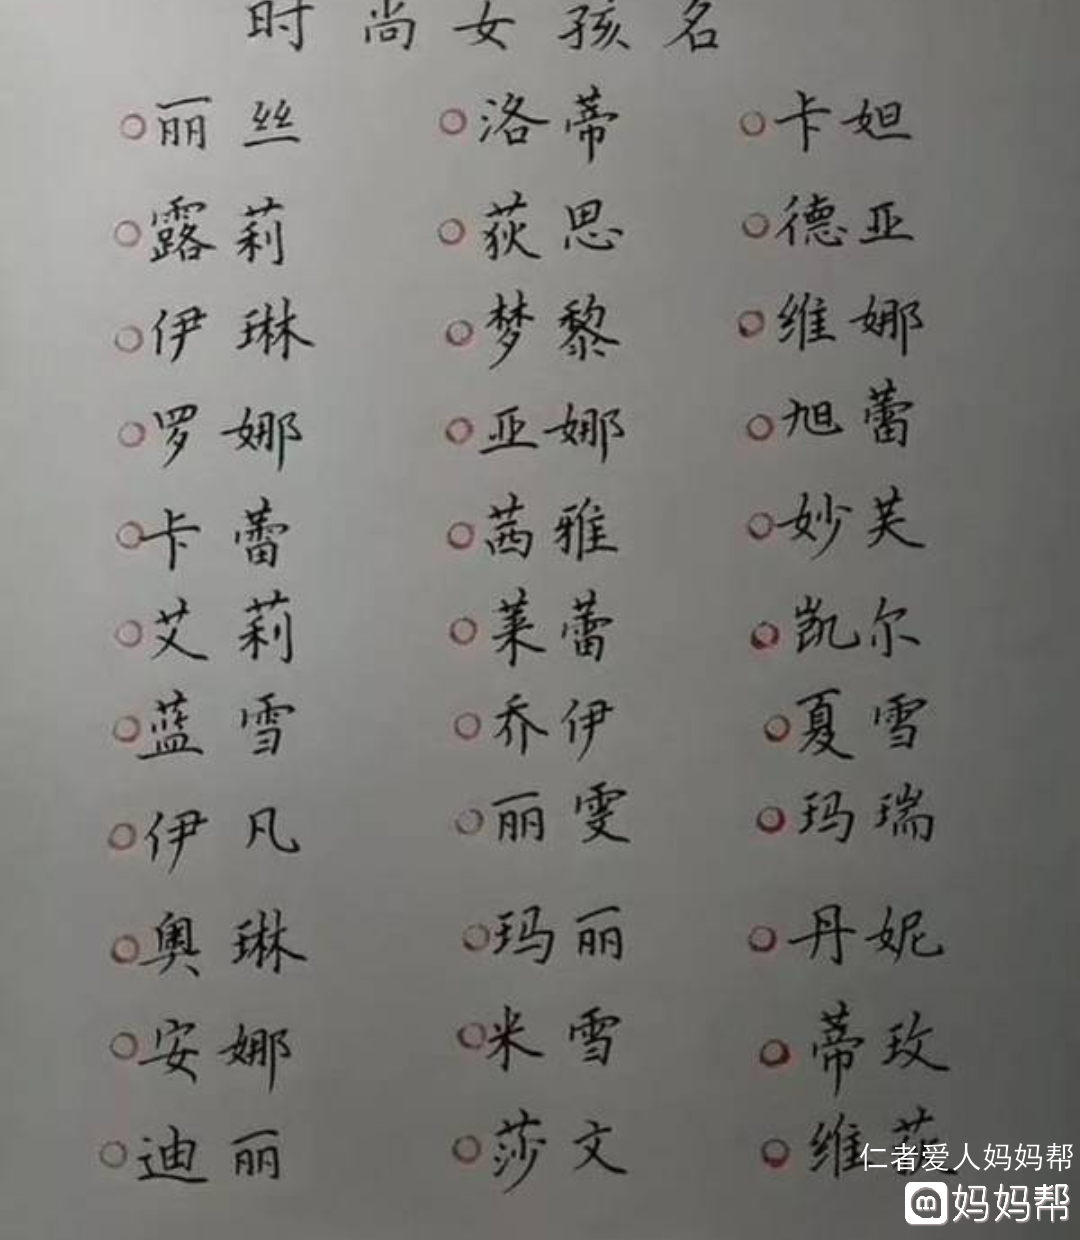 时尚女孩名
丽丝 洛蒂 卡妲
露莉 荻思 德亚
伊琳 梦黎 维娜
罗娜 亚娜 旭蕾
卡蕾 茜雅 妙芙
艾莉 莱蕾 凯尔
蓝雪 乔伊 夏雪
伊凡 丽雯 玛瑞
奥琳 玛丽 丹妮
安娜 米雪 蒂玫
迪丽 莎文 维
仁者爱人妈妈帮
妈妈帮